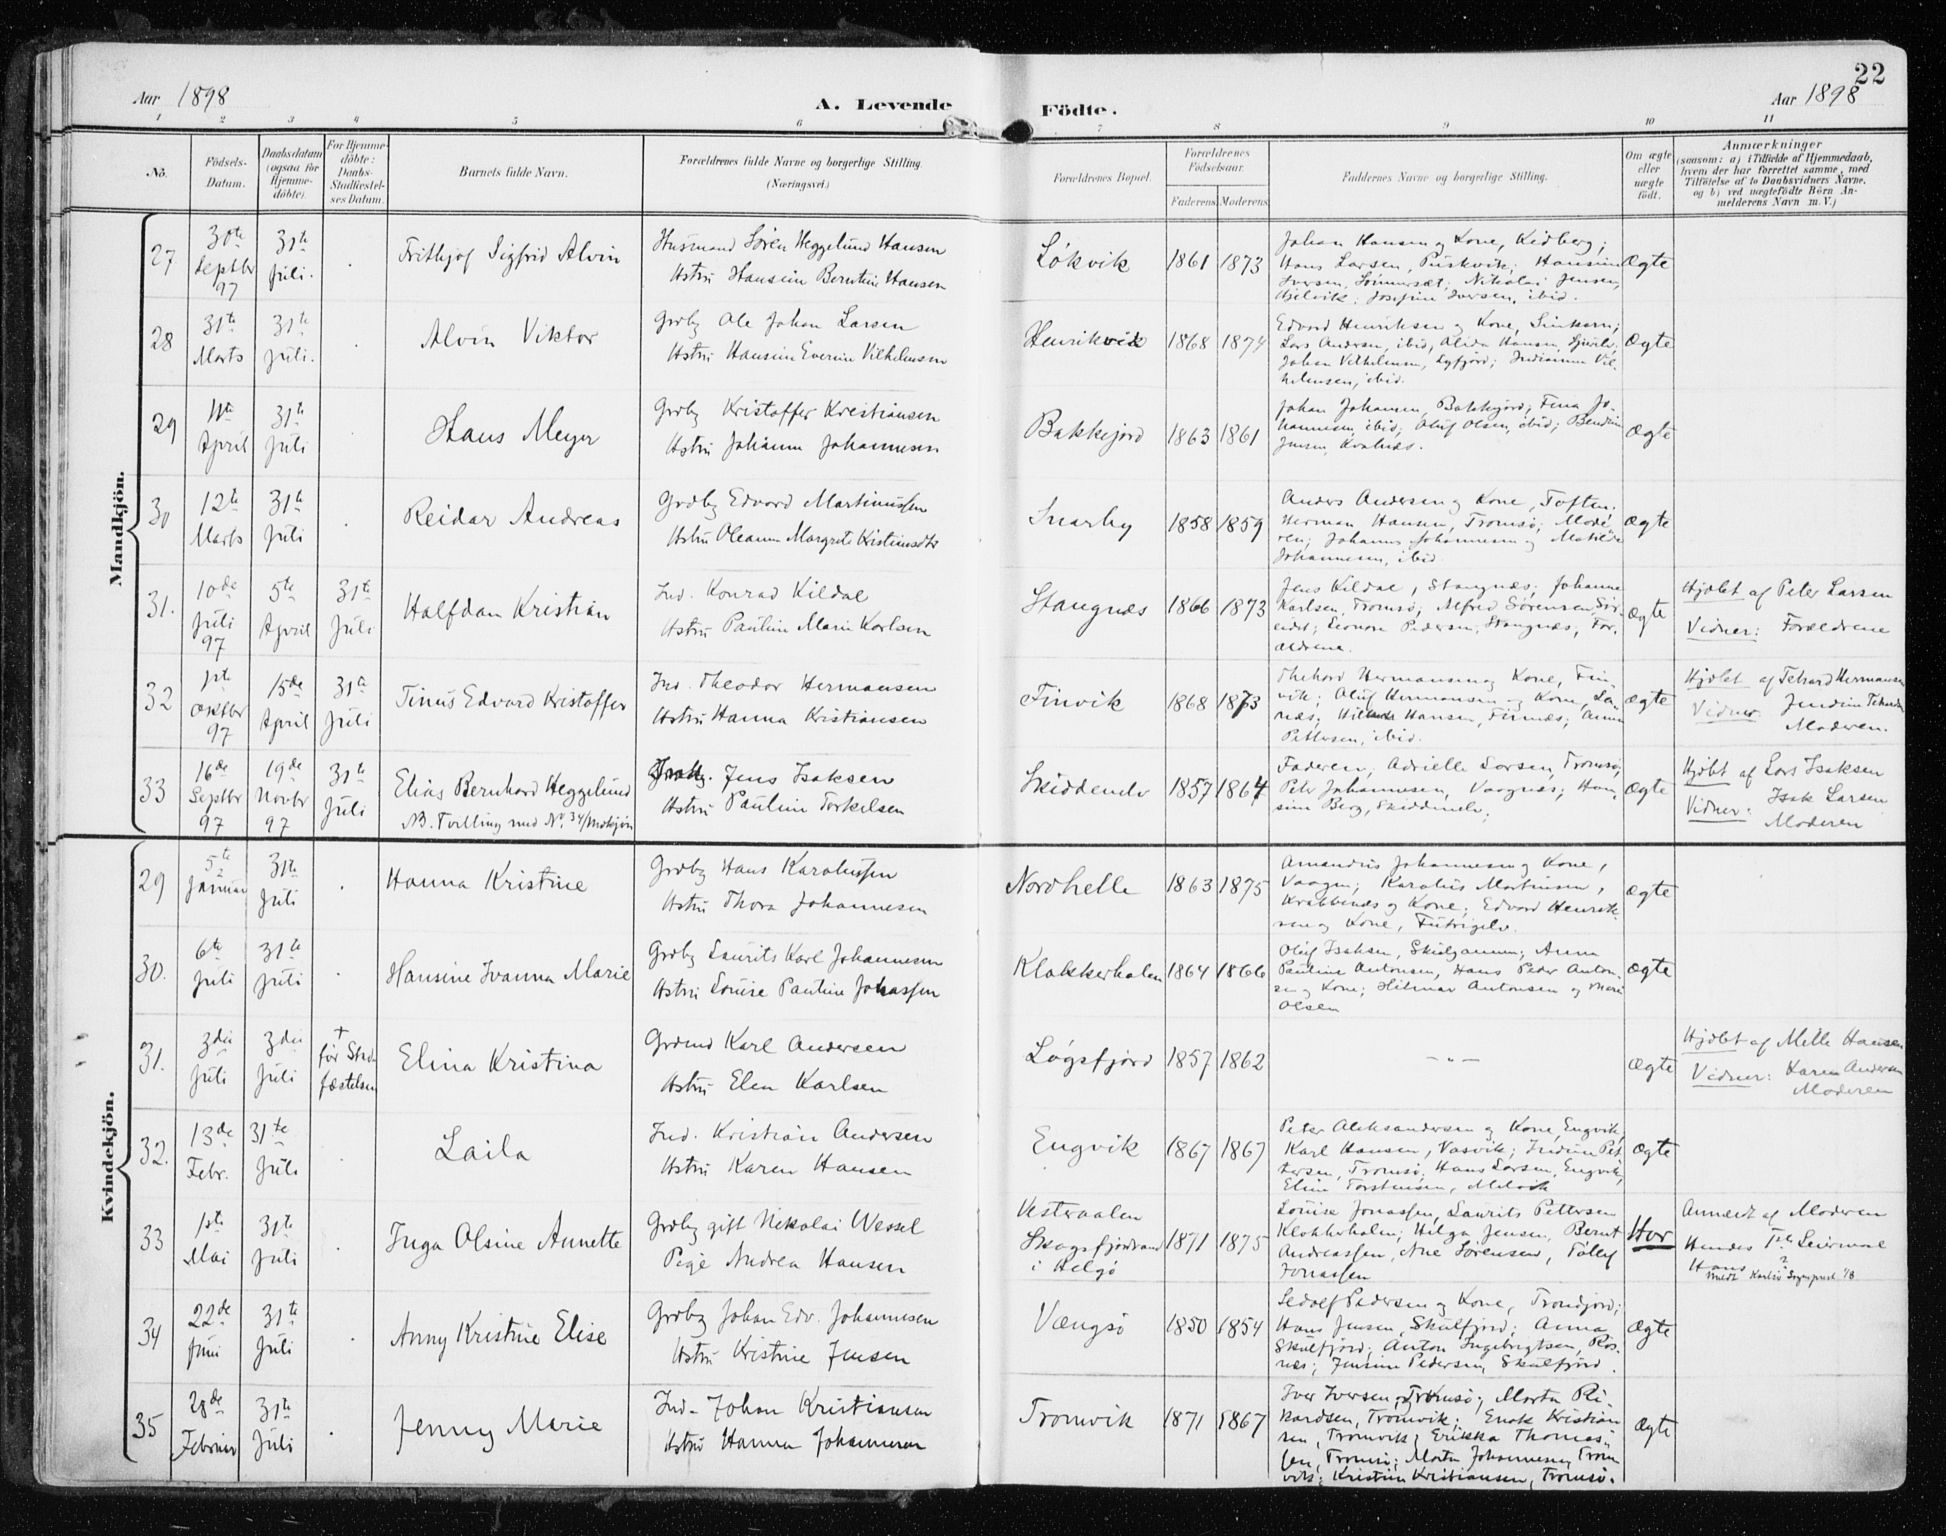 22
Aar 1898
A. Levende
Födte.
Aar 1898
1 2 3 4 5 6 7 8 9 10 11
No.
Födsels-
Datum.
Daabsdatum
(ogsaa for
Hjemme-
döbte).
For Hjemme-
döbte:
Daabs-
Stadfæstel-
ses Datum.
Barnets fulde Navn.
Forældrenes fulde Navne og borgerlige Stilling.
(Næringsvei.)
Forældrenes Bopæl.
Forældrenes
Födselsaar.
Faderens. Moderens.
Faddernes Navne og borgerlige Stilling.
Om ægte
eller
uægte
födt.
Anmærkninger
(saasom: a) i Tilfælde af Hjemmedaab,
hvem der har forrettet samme, med
Tilföielse af to Daabsvidners Navne,
og b) ved uægtefödte Börn An-
melderens Navn m. V.)
Mandkjön.
27
30te
Septbr
97
31te
Juli.
Frithjof Sigfrid Alvin
Husmand Søren Heggelund Hansen
Hstru Hansine Berntine Hansen
Løkvik
1861 1873
Johan Hansen og Kone, Kidberg;
Hans Larsen, Hansine
Iversen, Nikolai Jensen,
Josefine Iversen, ibid.
Ægte
28
31te
Marts
31te
Juli.
Alvin Viktor
Grdbg Ole Johan Larsen
Hstru Hansine Everine Vilhelmsen
Henrikvik
1868 1874
Edvard Henriksen og Kone,
Lars Andersen, ibid, Alida Hansen,
Johan Vilhelmsen, Lyfjord; Vil-
helmsen, ibid.
Ægte
29
11te
April
31te
Juli
Hans Meyer
Grdbg Kristoffer Kristiansen
Hstru Johanna Johannesen
Bakkejord
1863 1861
Johan Johansen, Bakkejord; Fina Jo-
hannesen, ibid; Oluf Olsen, ibid;
Jensen, Kvalnæs.
Ægte
30
12te
Marts
31te
Juli
Reidar Andreas
Grdbg Edvard Martinussen
Hstru Oleanna Margrete Kristiansdtr
Snarby
1858 1859
Anders Andersen og Kone, Toften;
Herman Hansen, Tromsø;
Johannes Johannesen og Matilde
Johannesen, ibid.
Ægte
31.
10de
Juli
97
5te
April
31te
Juli
Halfdan Kristian
Ind. Konrad Kildal
Hstru Pauline Marie Karlsen
Stangnæs
1866 1873
Jens Kildal, Stangnæs; Johanna
Karlsen, Tromsø; Alfred Sørensen, Sør-
eidet; Leonore Pedersen, Stangnæs, For-
ældrene.
Ægte
Hjdøbt af Peter Larsen
Vidner: Forældrene
32
1ste
Oktbr
97
15de
April
31te
Juli
Tinus Edvard Kristoffer
Ind. Theodor Hermansen
Hstru Hanna Kristiansen
Finvik
1868 1873
Thehard Hermansen og Kone, Fin-
vik; Oluf Hermansen og Kone,
Hansen, Finnæs; Anna
Pettersen, ibid.
Ægte
Hjdøbt af Tehard Hermansen
Vidner:
Moderen.
33
16de
Septbr
97
19de
Novbr
97
31te
Juli
Elias Bernhard Heggelund
NB. Tvilling med Nr. 34/Mdkjøn
Jens Isaksen
Hstru Pauline Torkelsen
Skiddenelv
1857 1864
Faderen, Adrielle Larsen, Tromsø;
Peter Johannesen, Vaagnæs; Han-
sine Berg, Skiddenelv.
Ægte
Hjdøbt af Lars Isaksen
Vidner: Isak Larsen
Moderen
Kvindekjön.
29
5te
Januar
31te
Juli
Hanna Kristine
Grdbg Hans Karoliussen
Hstru Thora Johannesen
Nordhelle
1863 1875
Amandus Johannesen og Kone,
Vaagen; Karolius Martinsen,
Krabbenæs og Kone; Edvard Henrik-
sen og Kone, Futrigelv.
Ægte
30.
6te
Juli
31te
Juli
Hansine Ivanna Marie
Grdbg Laurits Karl Johannesen
Hstru Louise Pauline Johnassen
Klokkerhalen
1864 1866
Oluf Isaksen, Anna
Pauline Antonsen, Hans Peder Anton-
sen og Kone; Hilmar Antonsen og Marie
Olsen
Ægte
31.
3die
Juli
3die
Juli
†
før Stad-
fæstelsen
Elina Kristina
Grdmd Karl Andersen
Hstru Elen Karlsen
Løgsfjord
1857 1862
— " —
Ægte
Hjdøbt af Mille Hansen
Vidner: Karen Andersen
Moderen
32.
13de
Febr.
31te
Juli
Laila
Ind. Kristian Andersen
Hstru Karen Hansen
Engvik
1867 1867
Peter Aleksandersen og Kone, Engvik;
Karl Hansen, Vasvik; Pet-
tersen, Tromsø, Hans Larsen, Engvik,
Eline Torstensen, Mikvik
Ægte
33
1ste
Mai
31te
Juli
Inga Olsine Annette
Grdbg gift Nikolai Wessel
Pige Andrea Hansen
Vesteraalen
Skogsfjordvand
i Helgø
1871 1875
Louise Jonassen, Laurits Pettersen
Klokkerhalen; Helga Jensen, Bernt
Andreassen, Sørensen,
Jonassen
Hor
Anmeldt af Moderen
Hendes
Hans ?
34
22de
Juni
31te
Juli
Anny Kristine Elise
Grdbg Johan Edv. Johannesen
Hstru Kristine Jensen
Vængsø
1850 1854
Sedolf Pedersen og Kone, Trondjord;
Hans Jensen, Skulfjord; Anna
Skulfjord; Anton Ingebrigtsen, Ros-
næs; Jensine Pedersen, Skulfjord.
Ægte
35
28de
Februar
31te
Juli
Jenny Marie
Ind. Johan Kristiansen
Hstru Hanna Johannesen
Tromvik
1871 1867
Iver Iversen, Tromsø; Marta Ri-
kardsen, Tromvik; Enok Kristian-
sen, Tromvik; Erikka Thomas-
sen, Tromsø; Marta Johannesen, Trom-
vik; Kristine Kristiansen, Tromsø.
Ægte